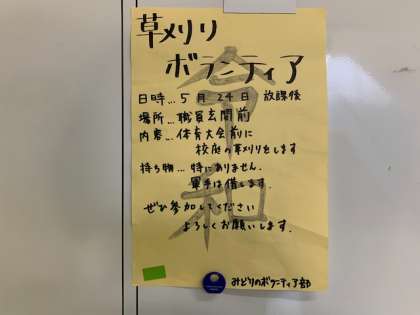 草刈り
ボランティア
日時…5月24日 放課後
場所…職員玄関前
内容…体育大会前に
校庭の草刈りをします
持ち物…特にありません.
軍手は借します.
ぜひ参加してください
よろしくお願いします.
みどりのボランティア部
令和